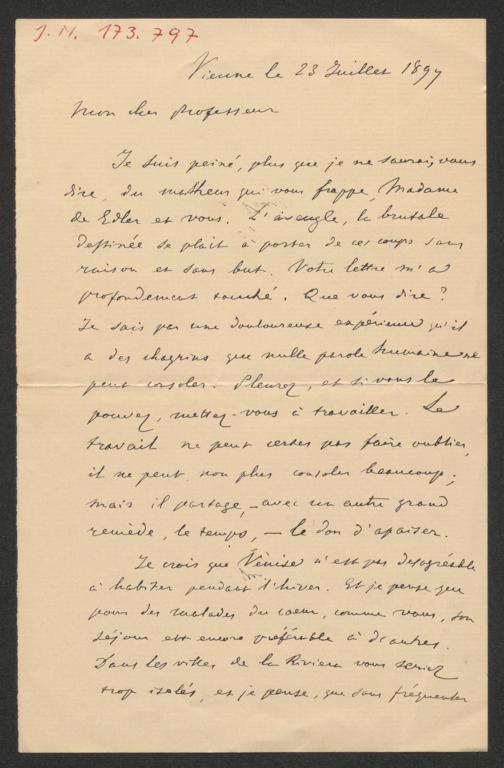 J.N. 173.797
Vienne le 23 Juillet 1897
Mon cher professeur
Je suis peiné, plus que je ne saurais vous
dire, du malheur qui vous frappe, Madame
de Edler et vous. L'aveugle, la brutale
destinée se plait à porter de ces coups sans
raison et sans but. Votre lettre m'a
profondément touché. Que vous dire?
Je sais par une douloureuse expérience qu'il
a des chagrins que nulle parole humaine ne
peut consoler. Pleurez, et si vous le
pouvez, mettez-vous à travailler. Le
travail ne peut certes pas faire oublier,
il ne peut non plus consoler beaucoup;
mais il partage, – avec un autre grand
remède, le temps, – le don d'apaiser.
Je crois que Venise n'est pas désagréable
à habiter pendant l'hiver. Et je pense que
pour des malades du coeur, comme vous, son
séjour est encore préférable à d'autres.
Dans les villes de la Riviera vous seriez
trop isolés, et je pense, que sans fréquenter